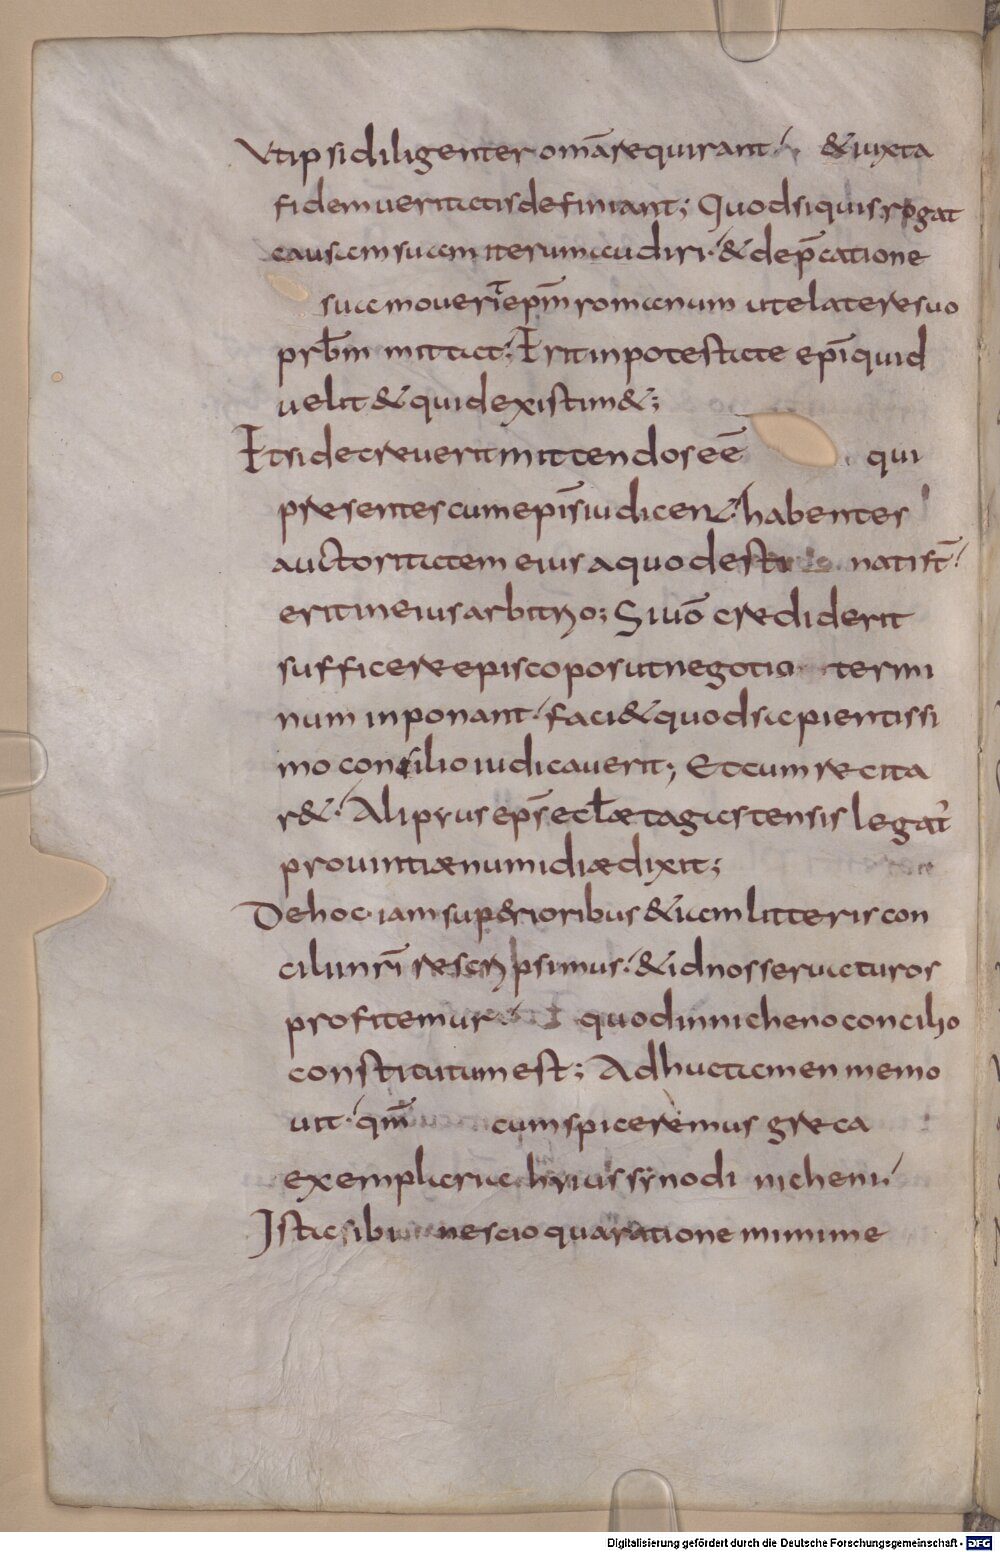 Vt ipsi diligenter om̄a requirant & iuxta
fidem ueritatis definiant; Quod si quis rogat
causam suam iterum audiri & dep̄catione
sua mouerit ep̄m romanum ut e latere suo
pr̄bm mittat; Erit in potestate ep̄i quid
uelit & quid existim&;
Et si decreuerit mittendos eē qui
presentes cum ep̄is iudicent habentes
auctoritatem eius a quo desti natī st̄
erit in eius arbitrio; Si uō crediderit
sufficere episcopos ut negotio termi
num inponant faci& quod sapientissi
mo consilio iudicauerit; Et cum recita
r& Alipyus ep̄s eclæ tagastensis legat'
prouintiæ numidiæ dixit;
De hoc iam sup&rioribus &iam litteris con
cilii nr̄i rescripsimus & id nos seruaturos
profitemur quod in nicheno concilio
constitutum est; Adhuc tamen memo
uit qm̄ cum spiceremus greca
exemplaria huius synodi nicheni
Ista sibi nescio qua ratione minime
Digitalisierung gefördert durch die Deutsche Forschungsgemeinschaft - DFG